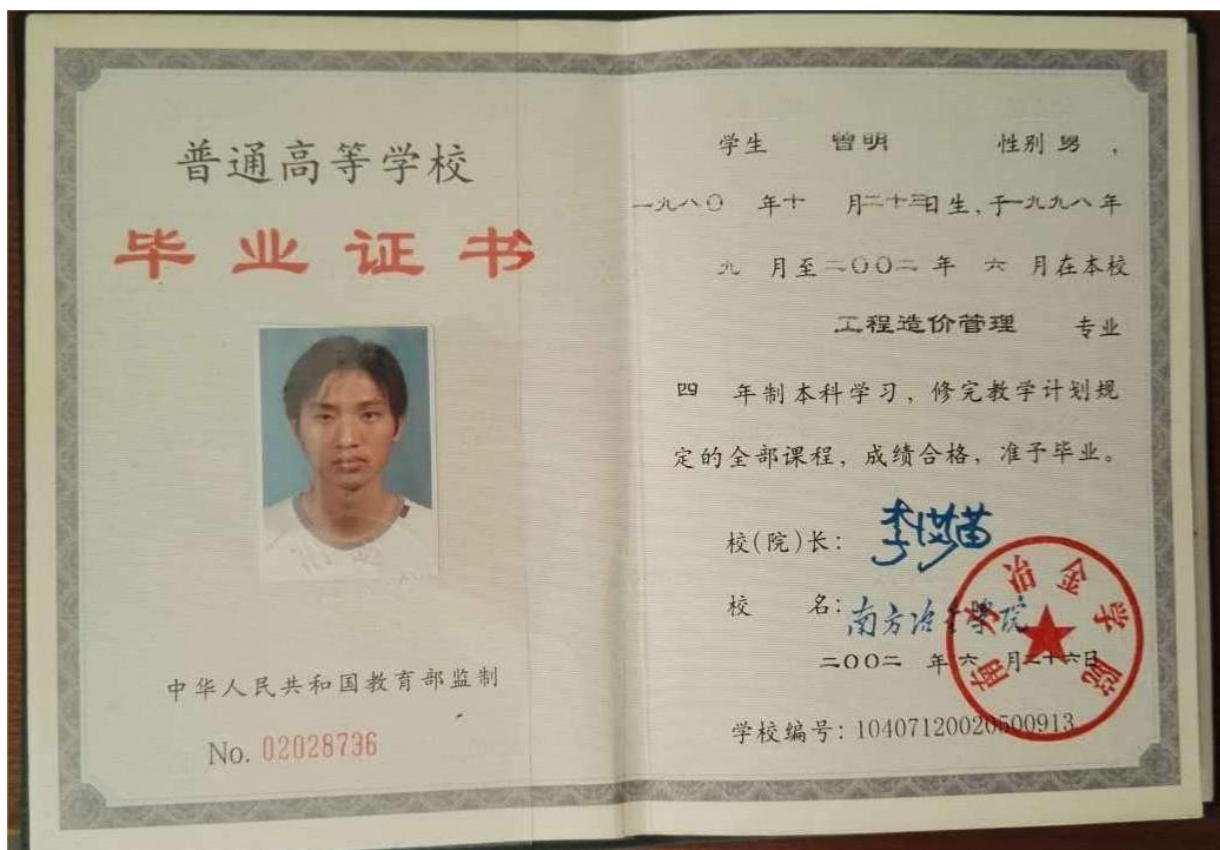 普通高等学校
毕业证书
中华人民共和国教育部监制
No. 02028736
学生 曾明 性别 男 ,
一九八〇 年十 月二十三日生, 于一九九八年
九 月至二〇〇二 年 六 月在本校
工程造价管理 专业
四 年制本科学习, 修完教学计划规
定的全部课程, 成绩合格, 准予毕业。
校(院)长:
校 名: 南方冶金学院
二〇〇二 年六 月二十六日
南方冶金学院
学校编号: 10407120020500913